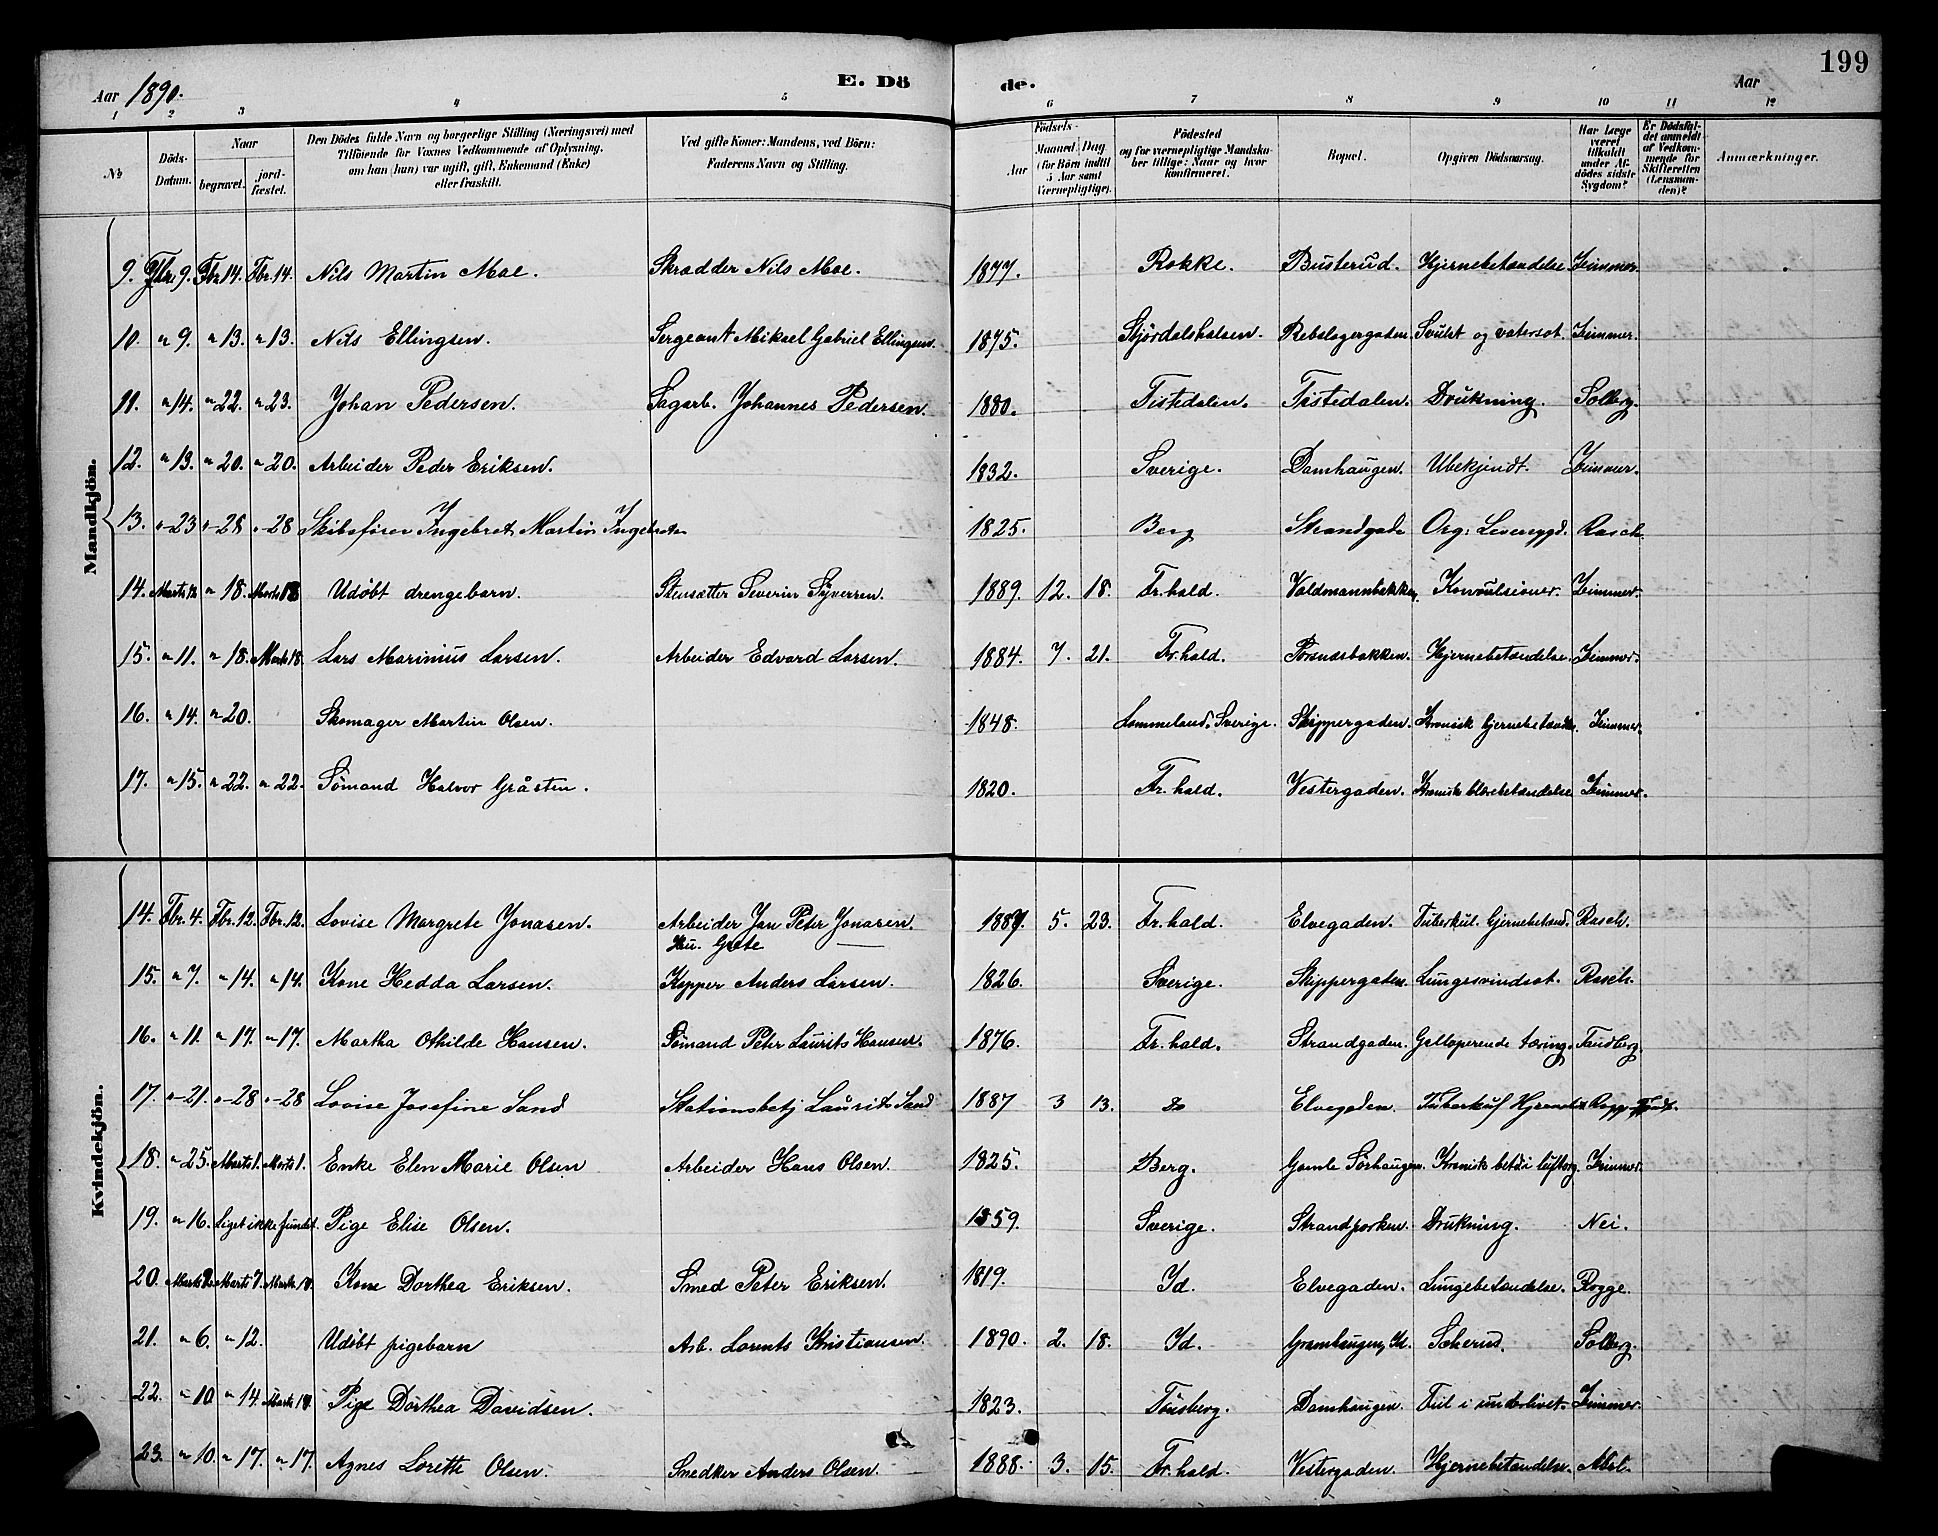 199
Aar 1890. E. Dö de. Aar
1 2 3 4 5 6 7 8 9 10 11 12
№ Döds-Datum. Naar begravet. jordfæstet. Den Dödes fulde Navn og borgerlige Stilling (Næringsvei) med Tilföiende for Voxnes Vedkommende af Oplysning, om han (hun) var ugift, gift, Enkemand (Enke) eller fraskilt. Ved gifte Koner: Mandens, ved Börn: Faderens Navn og Stilling. Födsels- Aar Maaned Dag (for Börn indtil 5 Aar samt Værnepligtige). Födested og for værnepligtige Mandskaber tillige: Naar og hvor konfirmeret. Bopæl. Opgiven Dödsaarsag. Har Læge været tilkaldt under Afdödes sidste Sygdom? Er Dödsfaldet anmeldt af Vedkommende for Skifteretten (Lensmanden)? Anmærkninger.
Mandkjön.
9. Fbr. 9. Fbr. 14. Fbr. 14. Nils Martin Moe. Skrædder Nils Moe. 1877. Rokke. Busterud. Hjernebetændelse. Zimmer.
10. " 9. " 13. " 13. Nils Ellingsen. Sergeant Mikael Gabriel Ellingsen. 1875. Stjördalshalsen. Rebslagergaden. og vatersot. Zimmer.
11. " 14. " 22. " 23. Johan Pedersen. Sagarb. Johannes Pedersen. 1880. Tistedalen. Tistedalen. Drukning. Solberg.
12. " 13. " 20. " 20. Arbeider Peder Eriksen. 1832. Sverige. Damhaugen. Ubekjendt. Zimmer.
13. " 23 " 28 " 28 Skibsfører Ingebret Martin 1825. Berg Strandgade Org: Rasch
14. Marts 18. Marts 18 Udöbt drengebarn. Stensætter Severin Syversen. 1889. 12. 18. Fr.hald. Konvulsioner. Zimmer.
15. " 11. " 18. Marts 18. Lars Marinius Larsen. Arbeider Edvard Larsen. 1884. 7. 21. Fr.hald. Porsnæsbakken. Hjernebetændelse. Zimmer.
16. " 14. " 20. Skomager Martin Olsen. 1848. Lommeland, Sverige. Skippergaden. Kronisk hjernebetændelse. Zimmer.
17. " 15. " 22. " 22. Sömand Halvor Gråsten. 1820. Fr.hald. Vestergaden. Kronisk blærebetændelse Zimmer.
Kvindekjön.
14. Fbr. 4. Fbr. 12. Fbr. 12. Lovise Margrete Jonasen. Arbeider Jan Peter Jonasen.
Hu. Grete —
1889. 5. 23. Fr.hald. Elvegaden. Tuberkul. Hjernebetænd. Rasch.
15. " 7. " 14. " 14. Kone Hedda Larsen. Kopper Anders Larsen. 1826. Sverige. Skippergaden. Lungesvindsot. Rasch.
16. " 11. " 17. " 17. Martha Othilde Hansen. Sömand Peter Laurits Hansen. 1876. Fr.hald. Strandgaden. Galloperende tæring. Tandberg.
17. " 21. " 28 " 28 Lovise Josefine Sand Stationsbetj Laurits Sand 1887 3 13. do Elvegaden. Tuberkul
18. " 25. Marts 1. Marts 1. Enke Elen Marie Olsen Arbeider Hans Olsen. 1825. Berg. Gamle Sörhaugen. Kronisk bet. i luftorg. Zimmer.
19. " 16. Liget ikke fundet. Pige Elise Olsen. 1859. Sverige. Drukning. Nei.
20. Marts 2. Marts 7. Marts 10. Kone Dorthea Eriksen. Smed Peter Eriksen. 1819. Id. Elvegaden. Lungebetændelse. Rogge.
21. " 6. " 12. Udöbt pigebarn Arb. Lorents Kristiansen. 1890. 2. 18. Id. Id. Solberg.
22. " 10 " 14. Marts Pige Dorthea Davidsen. 1823. Tönsberg. Damhaugen. i underlivet. Zimmer.
23. " 10. " 17. " 17. Agnes Lorette Olsen. Smedker Anders Olsen. 1888. 3. 15. Fr.hald. Vestergaden. Hjernebetændelse.